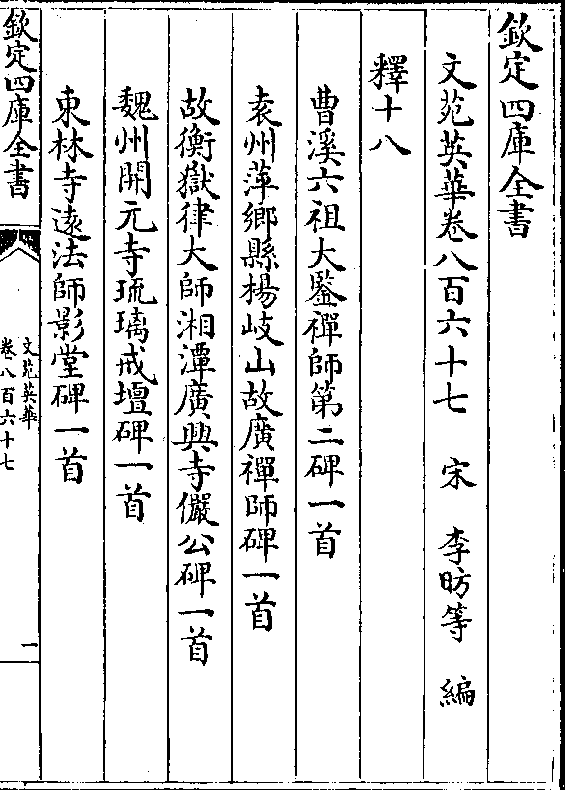 欽定四庫全書
文苑英華卷八百六十七　宋　李昉等　編
釋十八
曹溪六祖大鑒禪師第二碑一首
袁州萍鄉縣楊岐山故廣禪師碑一首
故衡嶽律大師湘潭廣興寺儼公碑一首
魏州開元寺琉璃戒壇碑一首
東林寺遠法師影堂碑一首
欽定四庫全書
文苑英華
卷八百六十七
一